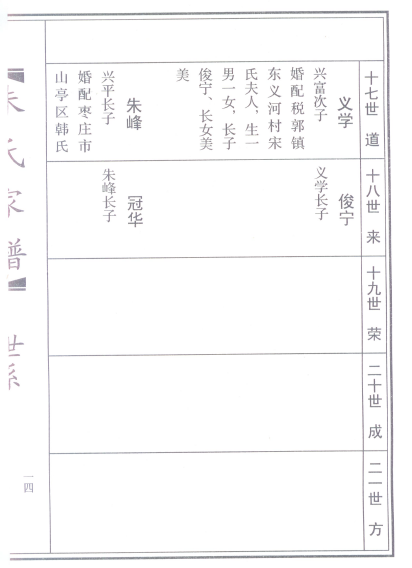 十七世 道
义学
兴富次子
婚配税郭镇
东义河村宋
氏夫人，生一
男一女，长子
俊宁、长女美
美
朱峰
兴平长子
婚配枣庄市
山亭区韩氏
十八世 来
俊宁
义学长子
冠华
朱峰长子
十九世 荣
二十世 成
二一世 方
朱氏家谱
世系
一四